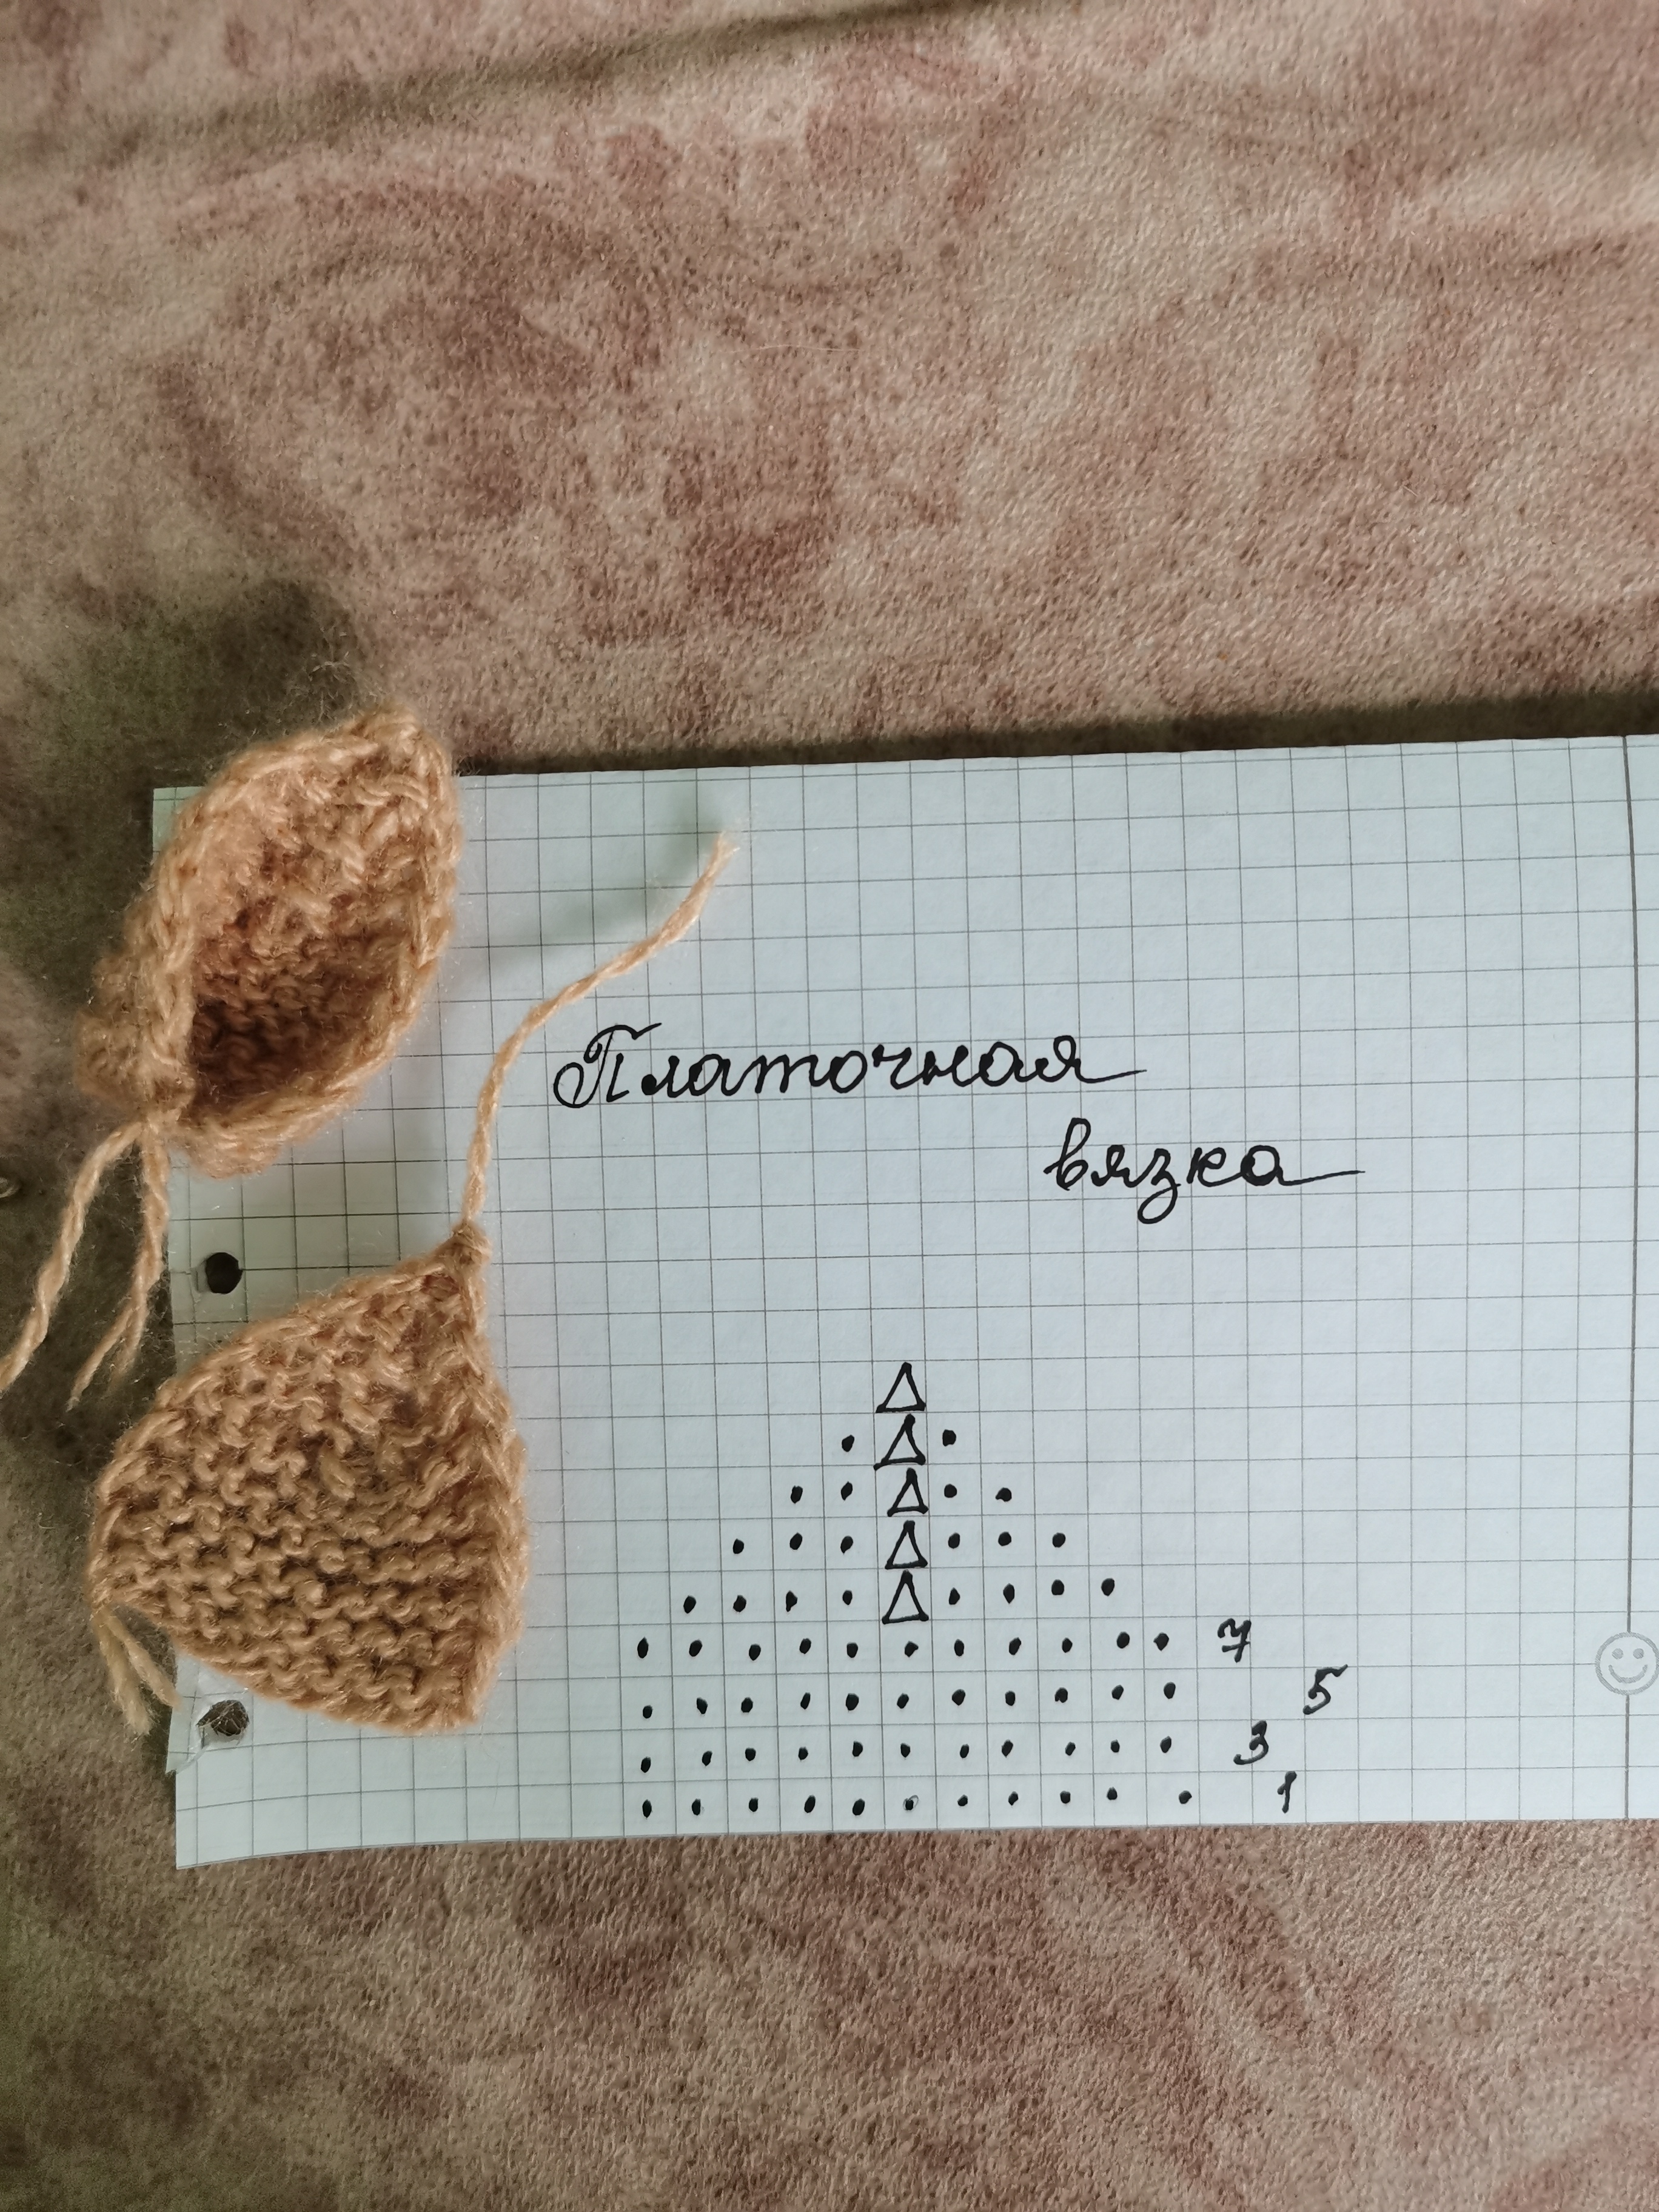 Платочная
вязка
7
5
3
1